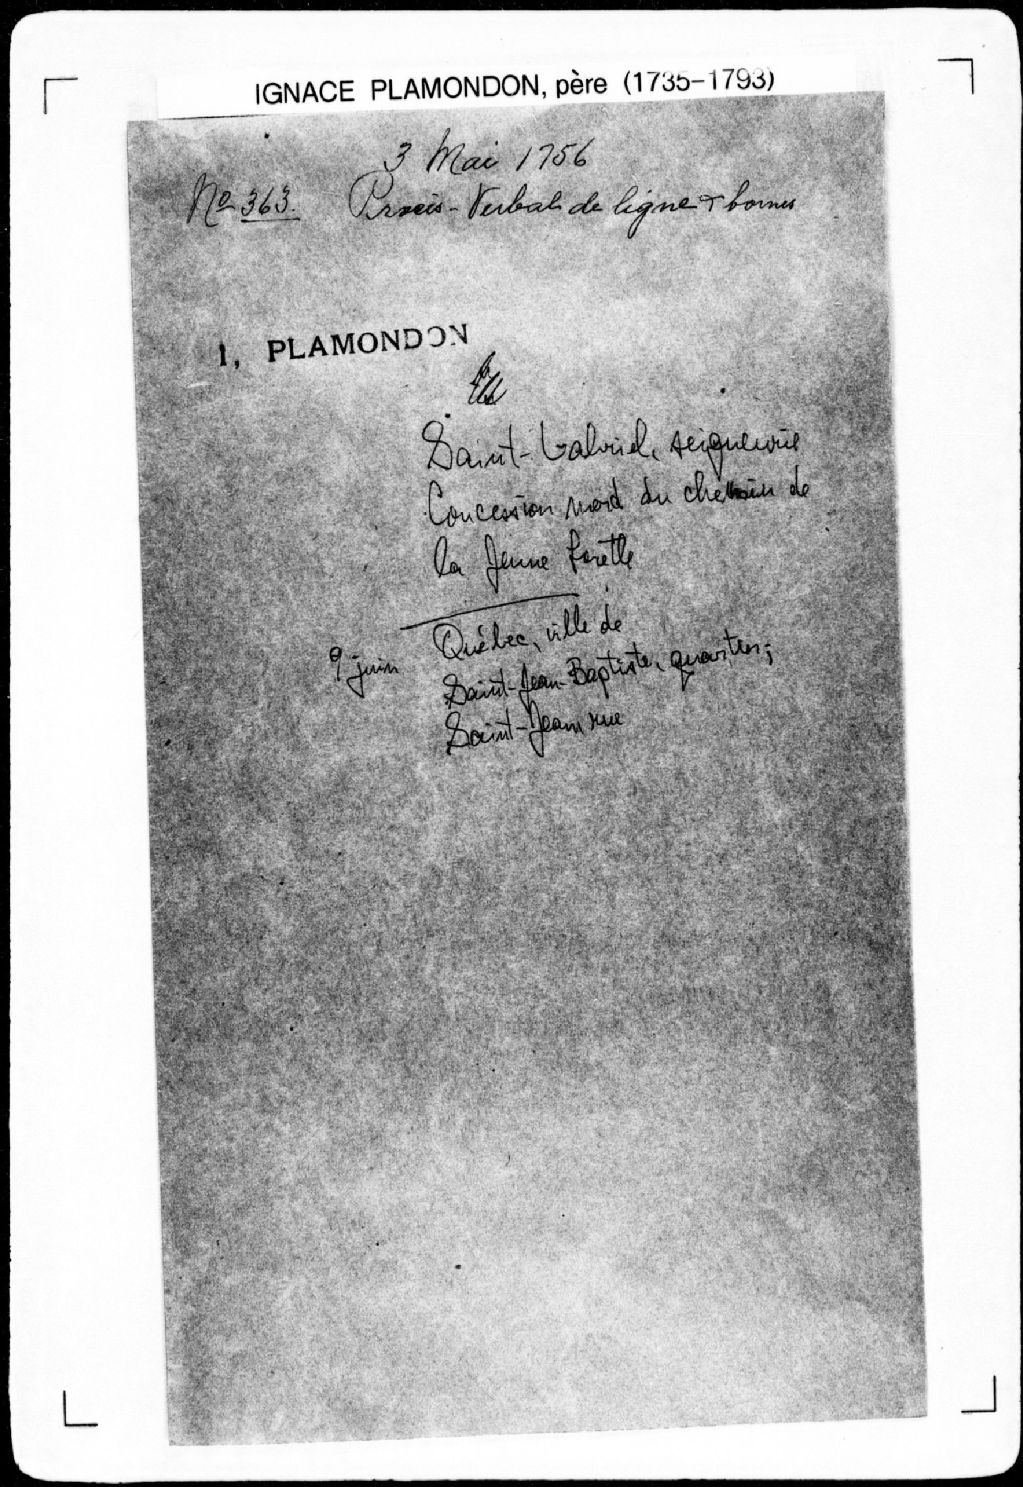 IGNACE PLAMONDON, père (1735-1793)
3 Mai 1756
No 363. Procès-Verbal de ligne & bornes
I, PLAMONDON
Saint-Gabriel, seigneurie
Concession nord du chemin de
la Jeune Lorette
Québec, ville de
9 juin
Saint-Jean-Baptiste, quartier;
Saint-Jean, rue